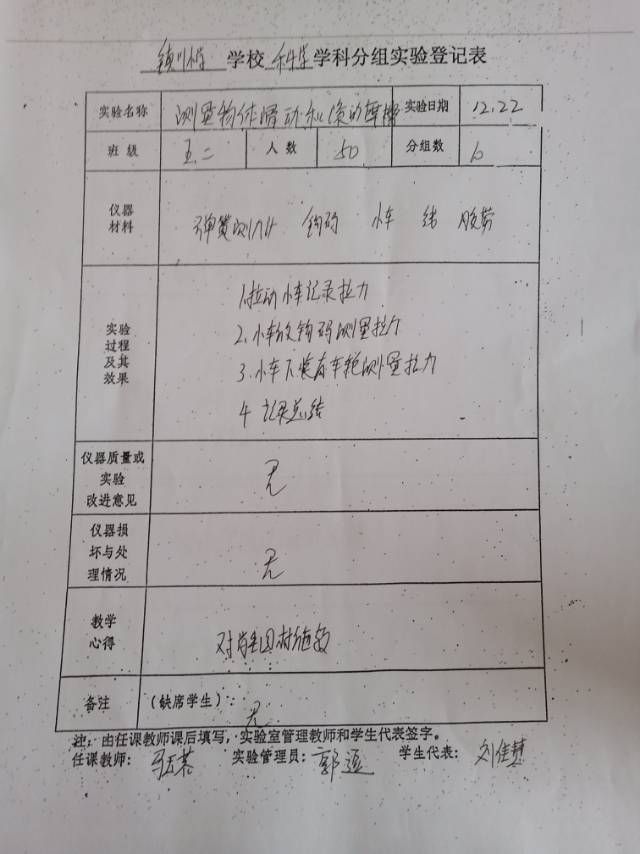 镇川小学 学校 科学 学科分组实验登记表
实验名称 测量物体滑动 的摩擦 实验日期 12.22
班级 五.二 人数 50 分组数 6
仪器材料 弹簧测力计 钩码 小车
实验过程及其效果
1.拉动小车记录拉力
2.小车放钩码测量拉力
3.小车下装有车轮测量拉力
4 记录总结
仪器质量或实验改进意见 无
仪器损坏与处理情况 无
教学心得
备注 (缺席学生): 无
注: 由任课教师课后填写,实验室管理教师和学生代表签字。
任课教师: 实验管理员: 郭 学生代表: 刘佳慧